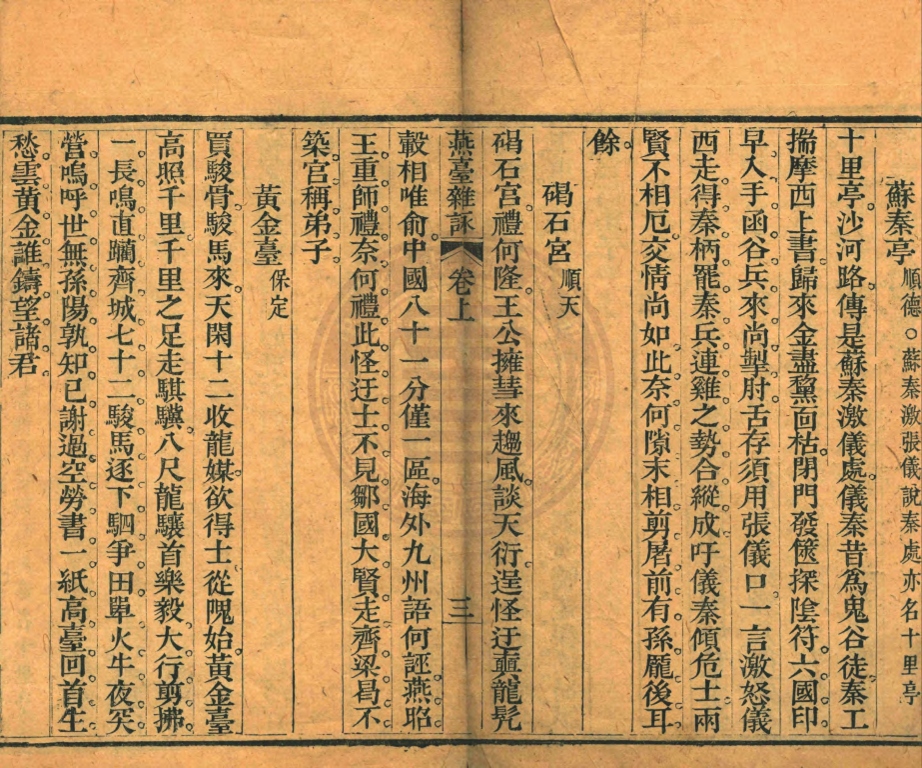 蘇秦亭順德○蘇秦激張儀說秦處亦名十里亭
十里亭沙河路傳是蘇秦激儀處儀秦昔爲鬼谷徒秦工
揣摩西上書歸來金盡黧面枯閉門發篋探陰符六國印
早入手函谷兵來尚掣肘舌存須用張儀口一言激怒儀
西走得秦柄罷秦兵連雞之勢合縱成吁儀秦傾危士兩
賢不相厄交情尚如此奈何隙末相剪屠前有孫龐後耳
餘
碣石宮順天
碣石宮禮何隆王公擁彗來趨風談天衍逞怪迂龜龍髠
燕臺雜詠 卷上 三
轂相唯俞中國八十一分僅一區海外九州語何誣燕昭
王重師禮奈何禮此怪迂士不見鄒國大賢走齊梁曷不
築宮稱弟子
黃金臺保定
買駿骨駿馬來天閑十二收龍媒欲得士從隗始黃金臺
高照千里千里之足走騏驥八尺龍驤首樂毅大行剪拂
一長鳴直躪齊城七十二駿馬逐下駟爭田單火牛夜突
營嗚呼世無孫陽孰知已謝過空勞書一紙高臺回首生
愁雲黃金誰鑄望諸君